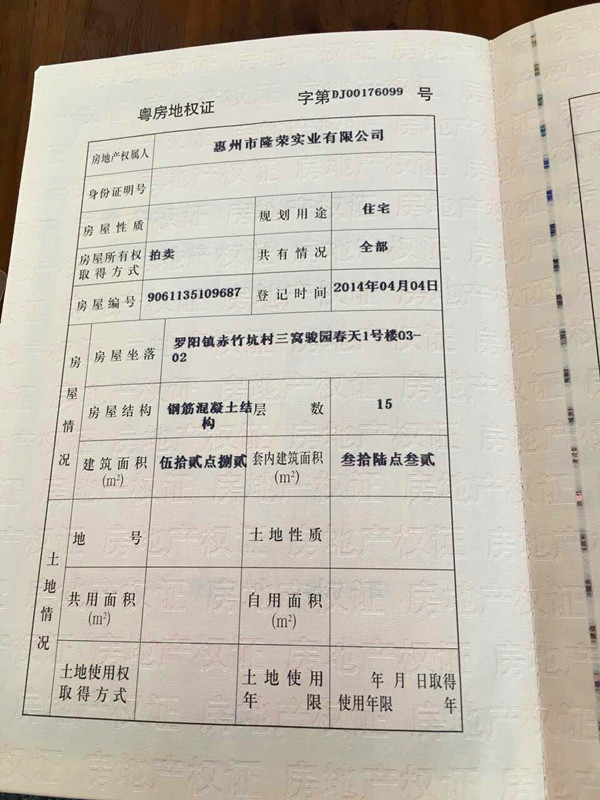 粤房地权证 字第DJ00176099 号
房地产权属人 惠州市隆荣实业有限公司
身份证明号
房屋性质 规划用途 住宅
房屋所有权取得方式 拍卖 共有情况 全部
房屋编号 9061135109687 登记时间 2014年04月04日
房屋情况
房屋坐落 罗阳镇赤竹坑村三窝骏园春天1号楼03-
02
房屋结构 钢筋混凝土结构 层数 15
建筑面积(m²) 伍拾贰点捌贰 套内建筑面积(m²) 叁拾陆点叁贰
土地情况
地号 土地性质
共用面积(m²) 自用面积(m²)
土地使用权取得方式 土地使用年限 年 月 日取得
使用年限 年